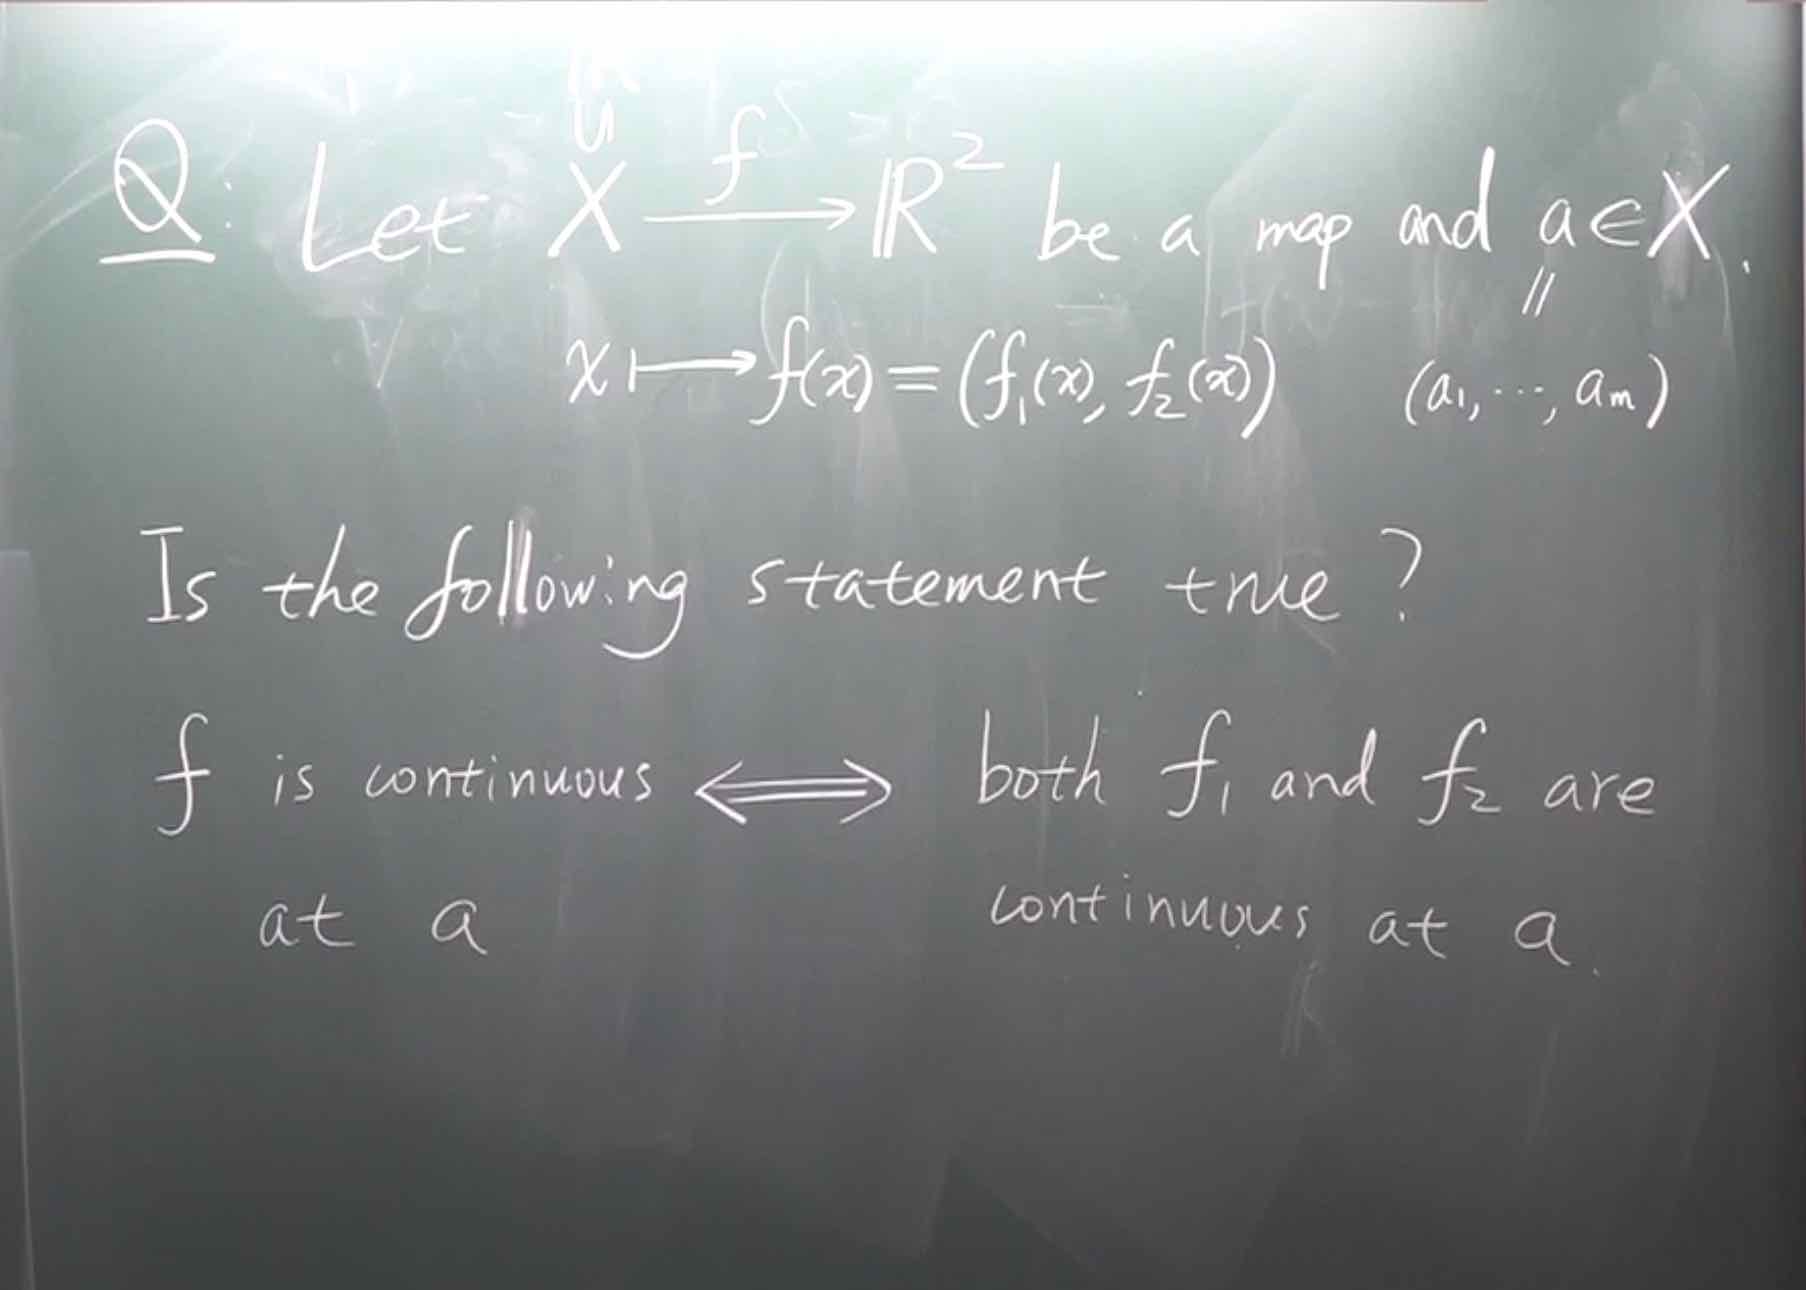 Q: Let X —f→ ℝ² be a map and a ∈ X.
x ↦ f(x) = (f₁(x), f₂(x)) (a₁, ..., aₘ)
Is the following statement true?
f is continuous ⟺ both f₁ and f₂ are
at a continuous at a.